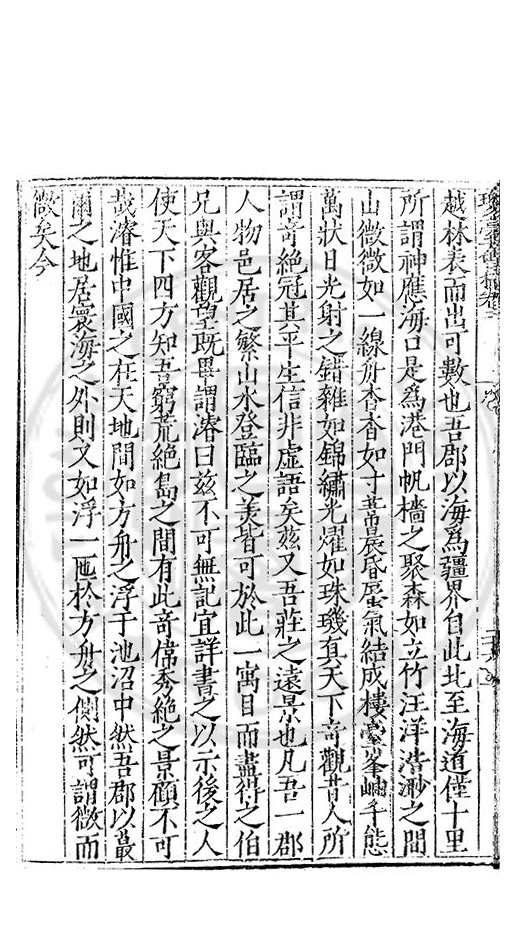 越林表而出可數也吾郡以海爲疆界自此北至海道僅十里
所謂神應海口是爲港門帆檣之聚森如立竹汪洋浩渺之間
山微微如一線舟杳杳如寸葦晨昏蜃氣結成樓臺峯巒千態
萬狀日光射之錯雜如錦繡光燿如珠璣眞天下奇觀昔人所
謂奇絶冠其平生信非虛語矣茲又吾莊之遠景也凡吾一郡
人物邑居之繁山水登臨之美皆可於此一寓目而盡得之伯
兄與客觀望既畢謂濬曰茲不可無記宜詳書之以示後之人
使天下四方知吾窮荒絶島之間有此奇偉秀絶之景顧不可
哉濬惟中國之在天地間如方舟之浮于池沼中然吾郡以蕞
爾之地居寰海之外則又如浮一匏於方舟之側然可謂微而
微矣今